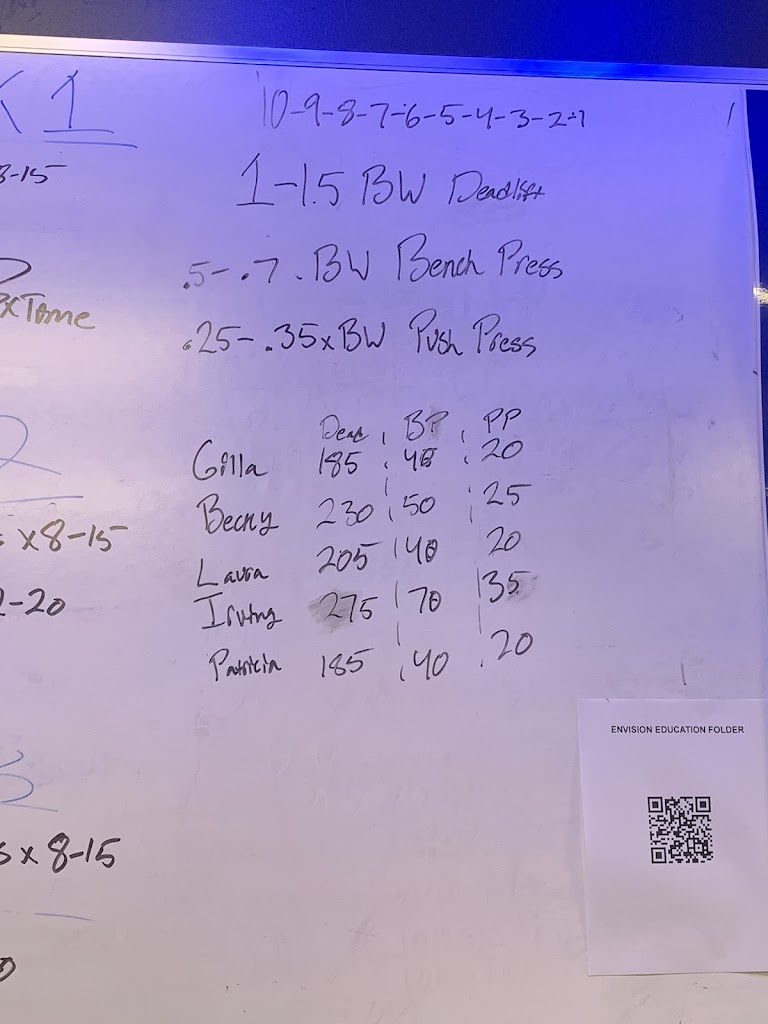 K 1
10-9-8-7-6-5-4-3-2-1
8-15
1-1.5 BW Deadlift
.5-.7 . BW Bench Press
.25-.35xBW Push Press
Dead BP PP
Gilla 185 40 20
Becky 230 50 25
Laura 205 40 20
Irving 275 70 35
Patricia 185 40 20
2
x8-15
2-20
x 8-15
ENVISION EDUCATION FOLDER